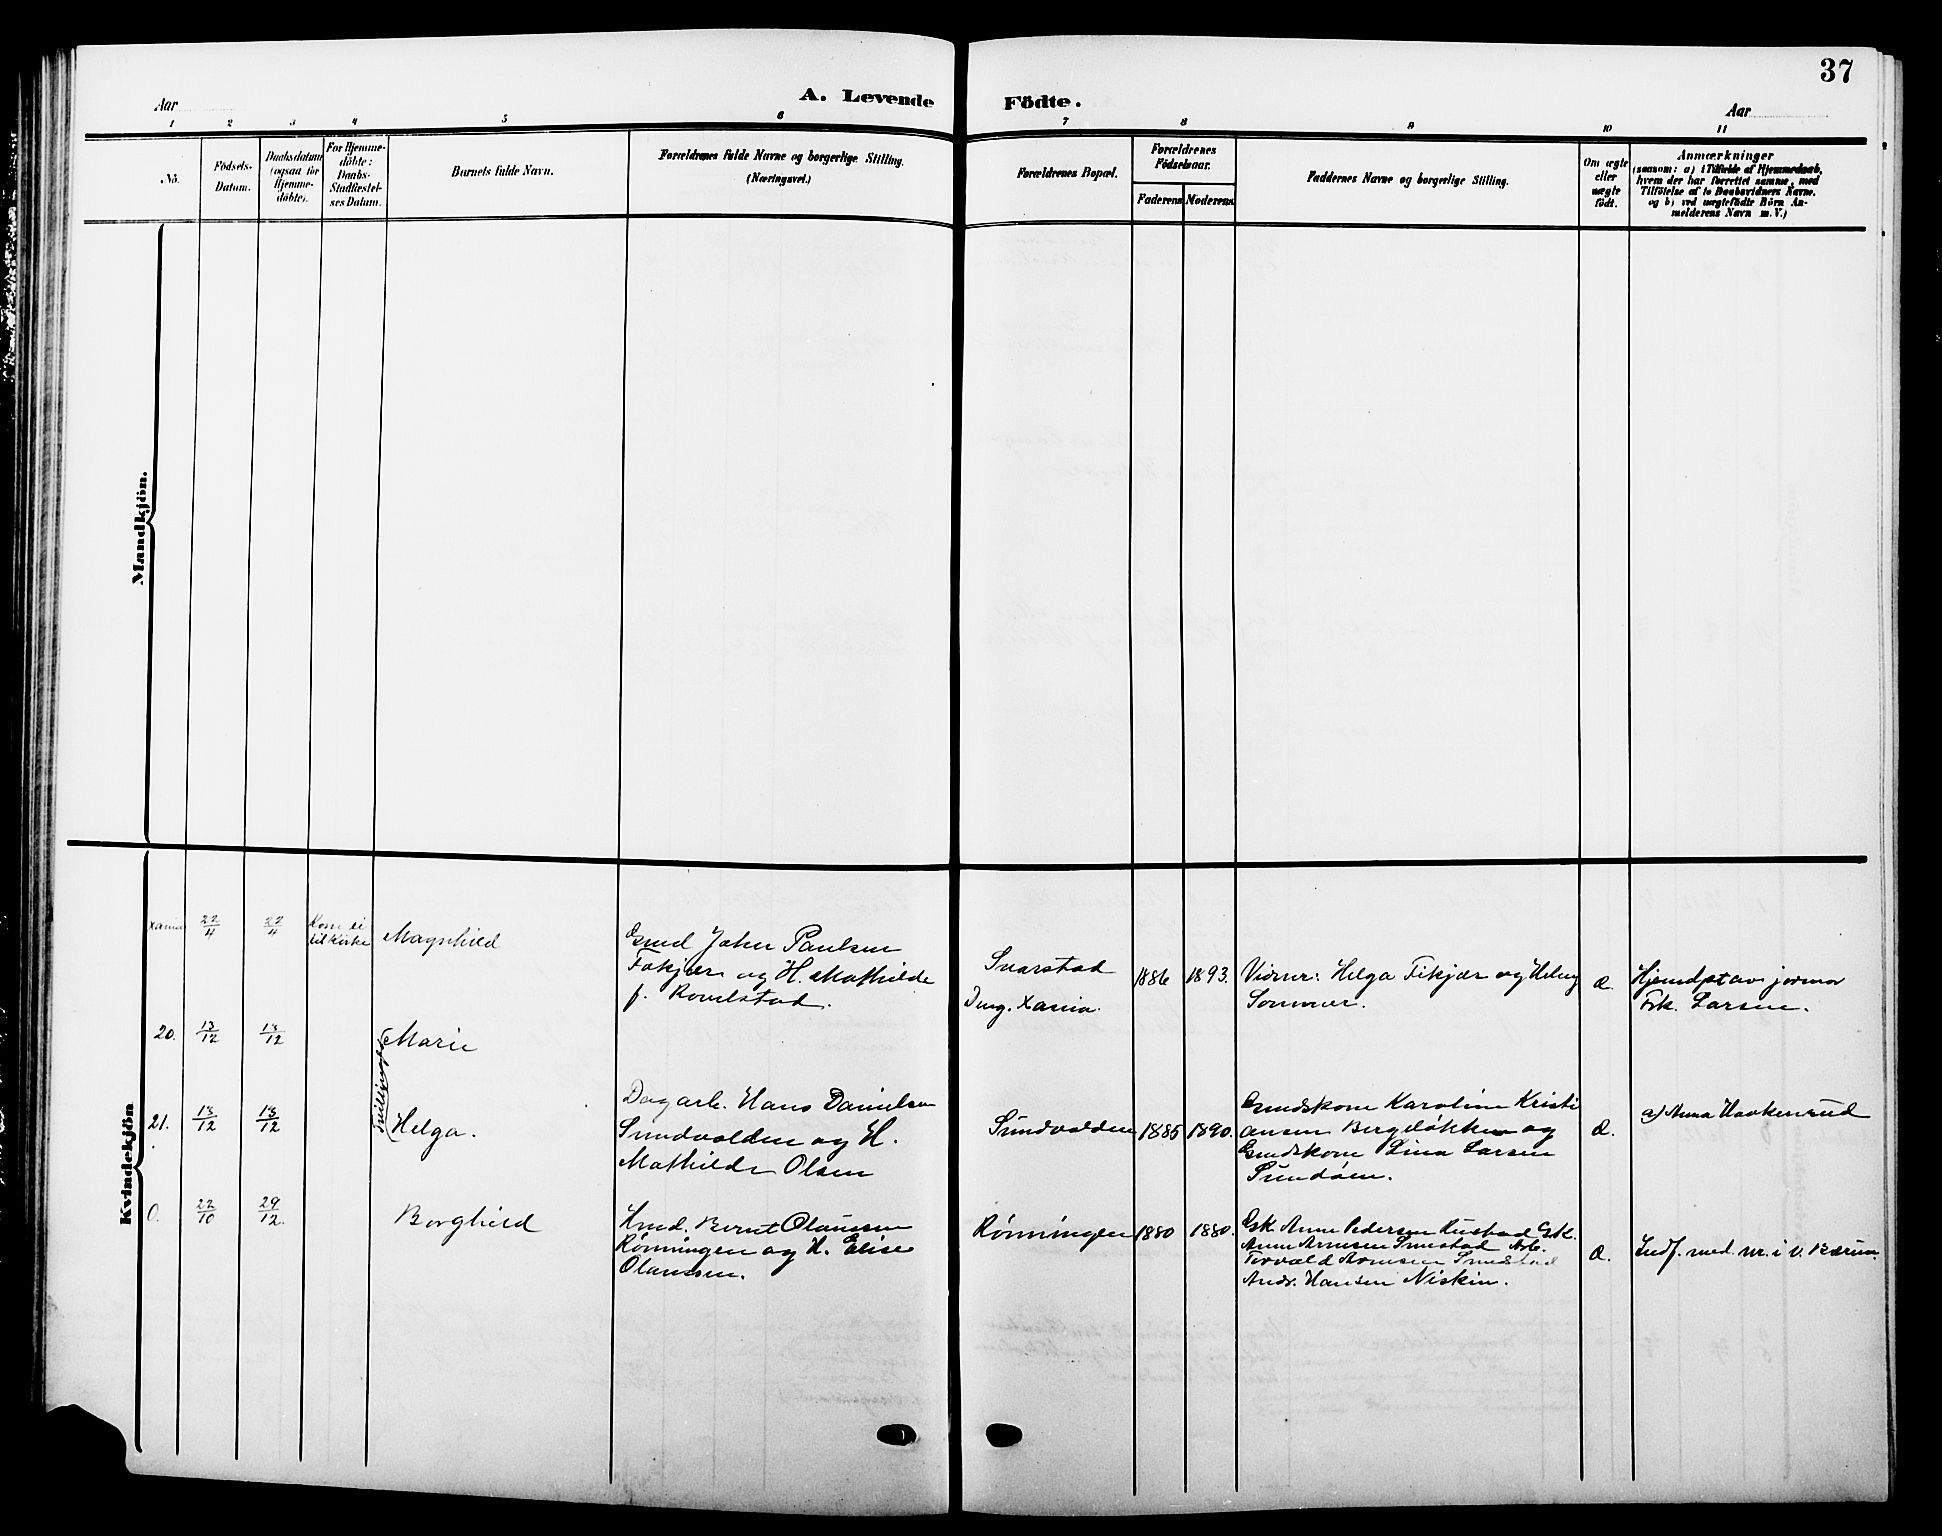 37
Aar
A. Levende Födte.
Aar
1 2 3 4 5 6 7 8 9 10 11
No.
Födsels-Datum.
Daabsdatum (ogsaa for Hjemme-döbte).
For Hjemme-döbte: Daabs-Stadfæstel-ses Datum.
Barnets fulde Navn.
Forældrenes fulde Navne og borgerlige Stilling. (Næringsvei.)
Forældrenes Bopæl.
Forældrenes Födselsaar.
Faderens Moderens
Faddernes Navne og borgerlige Stilling.
Om ægte eller uægte födt.
Anmærkninger
(saasom: a) i Tilfælde af Hjemmedaab,
hvem der har forrettet samme, med
Tilföielse af to Daabsvidners Navne.
og b) ved uægtefödte Börn An-
melderens Navn m. V.)
Mandkjön.
Kvindekjön
Xania 22/4 22/4 Kom ei til kirke
Magnhild
Gmd John Paulsen
og H. Mathilde
f.
Svarstad
Xania.
1886 1893.
Vidner: Helga Fikjær og
Sommer.
Æ.
Frk. Larsen.
20. 13/12 13/12
Marie
Tvillinger
21. 13/12 13/12
Helga.
Dagarb. Hans Danielsen
Sundvolden og H.
Mathilde Olsen
Sundvolden
1885 1890.
Gmdskone Karoline Kristi
ansen Bergeløkken og
Gmdskone Lina Larsen
Sundøen.
Æ.
a) Anna Haakenrud
0. 22/10 29/12.
Borghild
Bernt Olaussen
Rønningen og H. Elise
Olaussen.
Rønningen
1880 1880.
Gk. Anne Pedersen Rustad Gk.
Anne Arnesen Smestad Arb.
Torvald Arnesen Smestad
Andr. Hansen Niskin.
Æ.
Indf. med nr. i V. Bærum